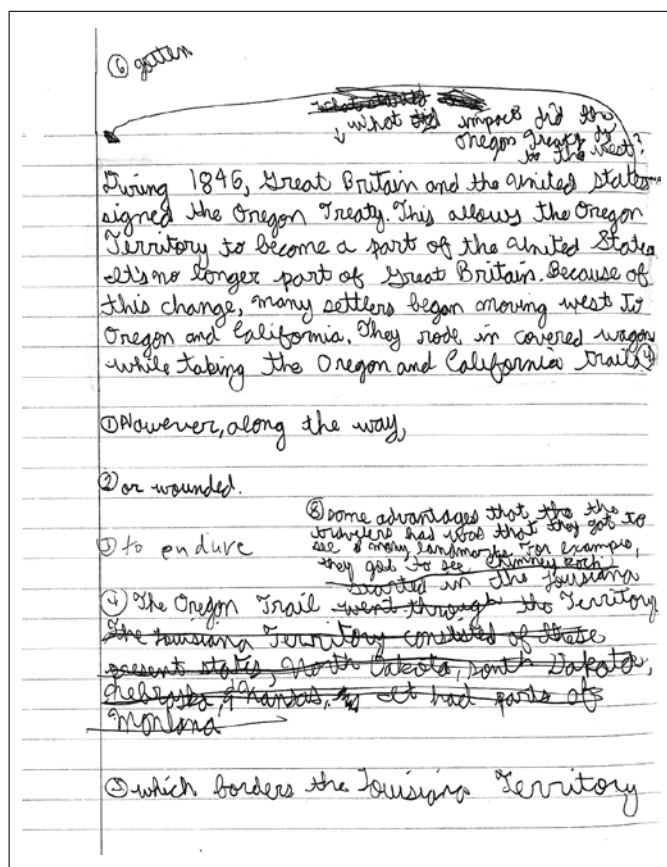 ⑥ gotten
what started
↓ what did impact did the
Oregon Treaty do
to the West?
During 1846, Great Britain and the United States
signed the Oregon Treaty. This allows the Oregon
Territory to become a part of the United States
It's no longer part of Great Britain. Because of
this change, many settlers began moving west to
Oregon and California. They rode in covered wagon
while taking the Oregon and California trails ④
① However, along the way,
② or wounded.
⑧ some advantages that the the
travelers had was that they got to
see many landmarks. For example,
they got to see Chimney Rock
③ to endure
started in the Louisiana
④ The Oregon Trail went through the Territory
The Louisiana Territory consisted of these
present states, North Dakota, South Dakota,
Nebraska, Kansas, It had parts of
Montana
⑤ which borders the Louisiana Territory